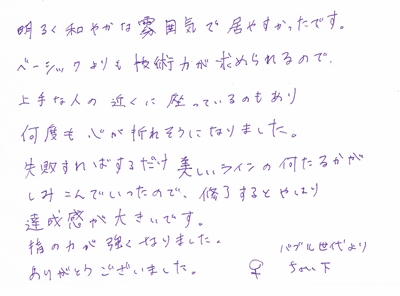 明るく和やかな雰囲気で居やすかったです。
ベーシックよりも技術力が求められるので、
上手な人の近くに座っているのもあり
何度も心が折れそうになりました。
失敗すればするだけ美しいラインの何たるかが
しみこんでいったので、修了するとやはり
達成感が大きいです。
指の力が強くなりました。
ありがとうございました。 ♀ バブル世代より
ちょい下